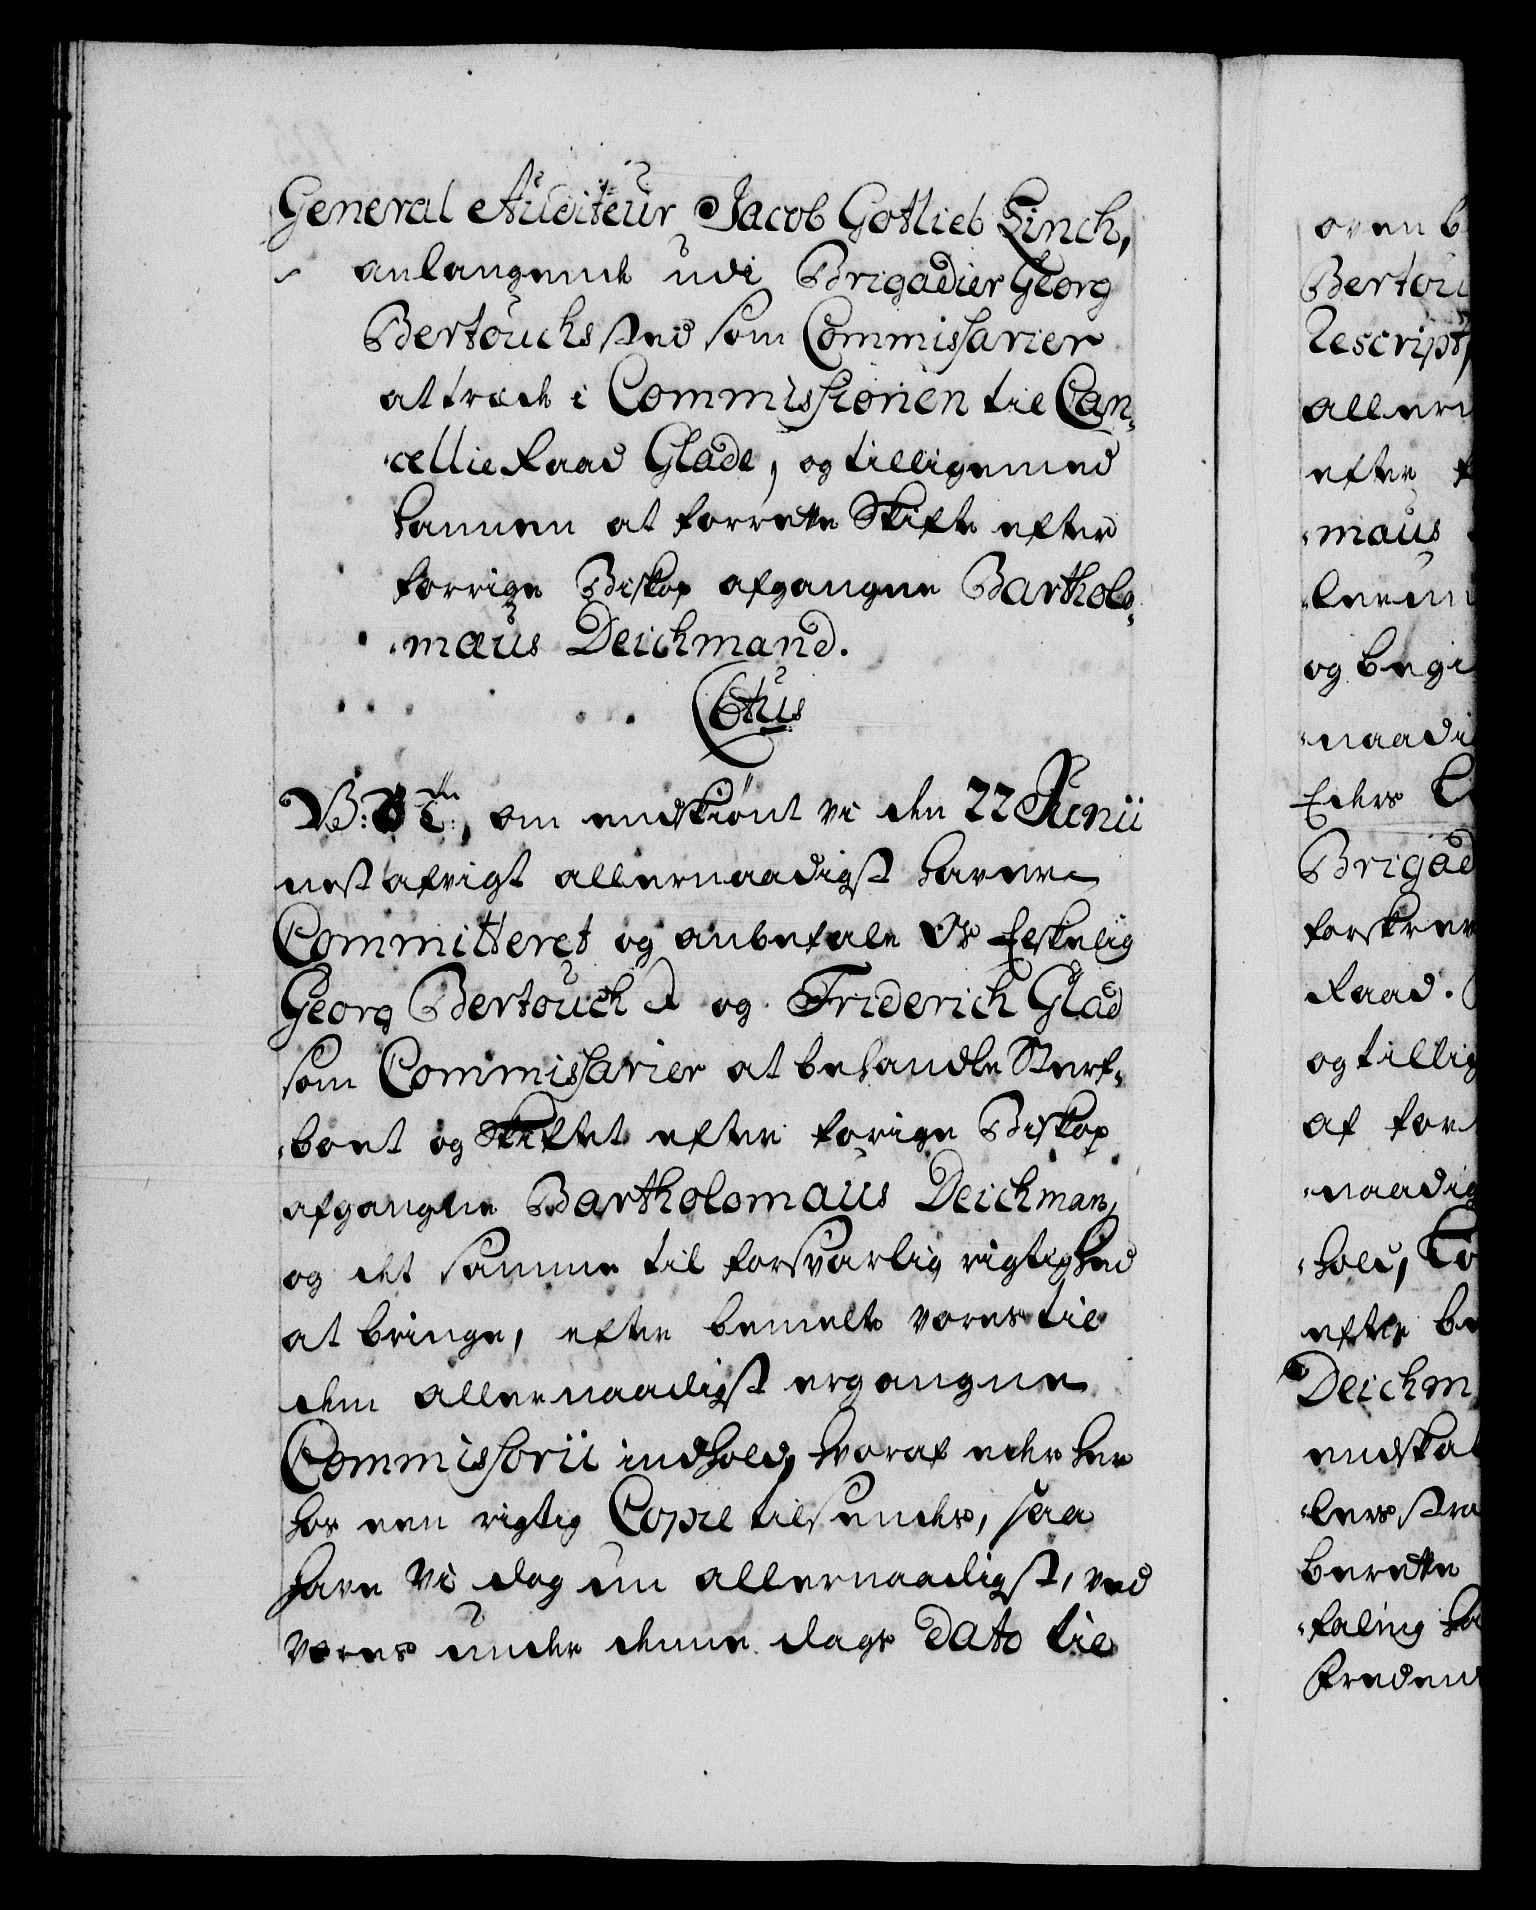 General Auditeur Jacob Gotlieb Linch,
anlangende udi Brigadier Georg
Bertouchs sted som Commissarier
at træde i Commissionen til Can-
cellie Raad Glade, og tilligemed
hannem at forrette Skifte efter
forrige Biskop afgangne Bartholo-
mæus Deichmand.
Ctus
V: G: T:, om endskiønt vi den 22 Junii
nest afvigt allernaadigst haver
Committeret og anbefale Os Elskelig
Georg Bertouch og Friderich Glad
som Commissarier at behandle Sterf-
boet og Skiftet efter forige Biskop
afgangne Bartholomæus Deichman,
og det samme til forsvarlig rigtighed
at bringe, efter bemelte vores til
dem allernaadigst ergangne
Commissorii indhold, hvoraf eder her
hos een rigtig Copie tilsendes, saa
have vi dog nu allernaadigst, ved
vores under denne dags Dato til
oven b
Bertou
Rescript,
allern
efter f
maus
leem
og begi
naadi
Eders
Brigad
forskrev
Raad.
og tillig
af for
naadig
hold,
efter be
Deichm
endskab
lers stra
berette
faling ha
Freden